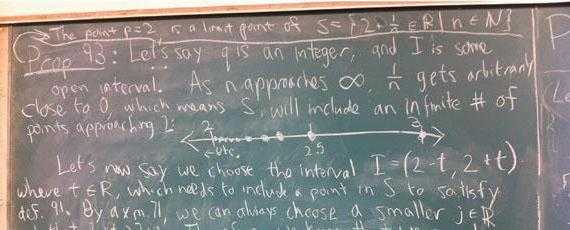 → The point p=2, is a limit point of S = {2+1/n ∈ R | n ∈ N}
Prop 93: Let's say q is an integer, and I is some
open interval. As n approaches ∞, 1/n gets arbitrarily
close to 0, which means S will include an infinite # of
points approaching 2:
2 3
←etc. 2.5
Let's now say we choose the interval I=(2-t, 2+t)
where t∈R, which needs to include a point in S to satisfy
def. 91. By axm. 71, we can always choose a smaller j∈R